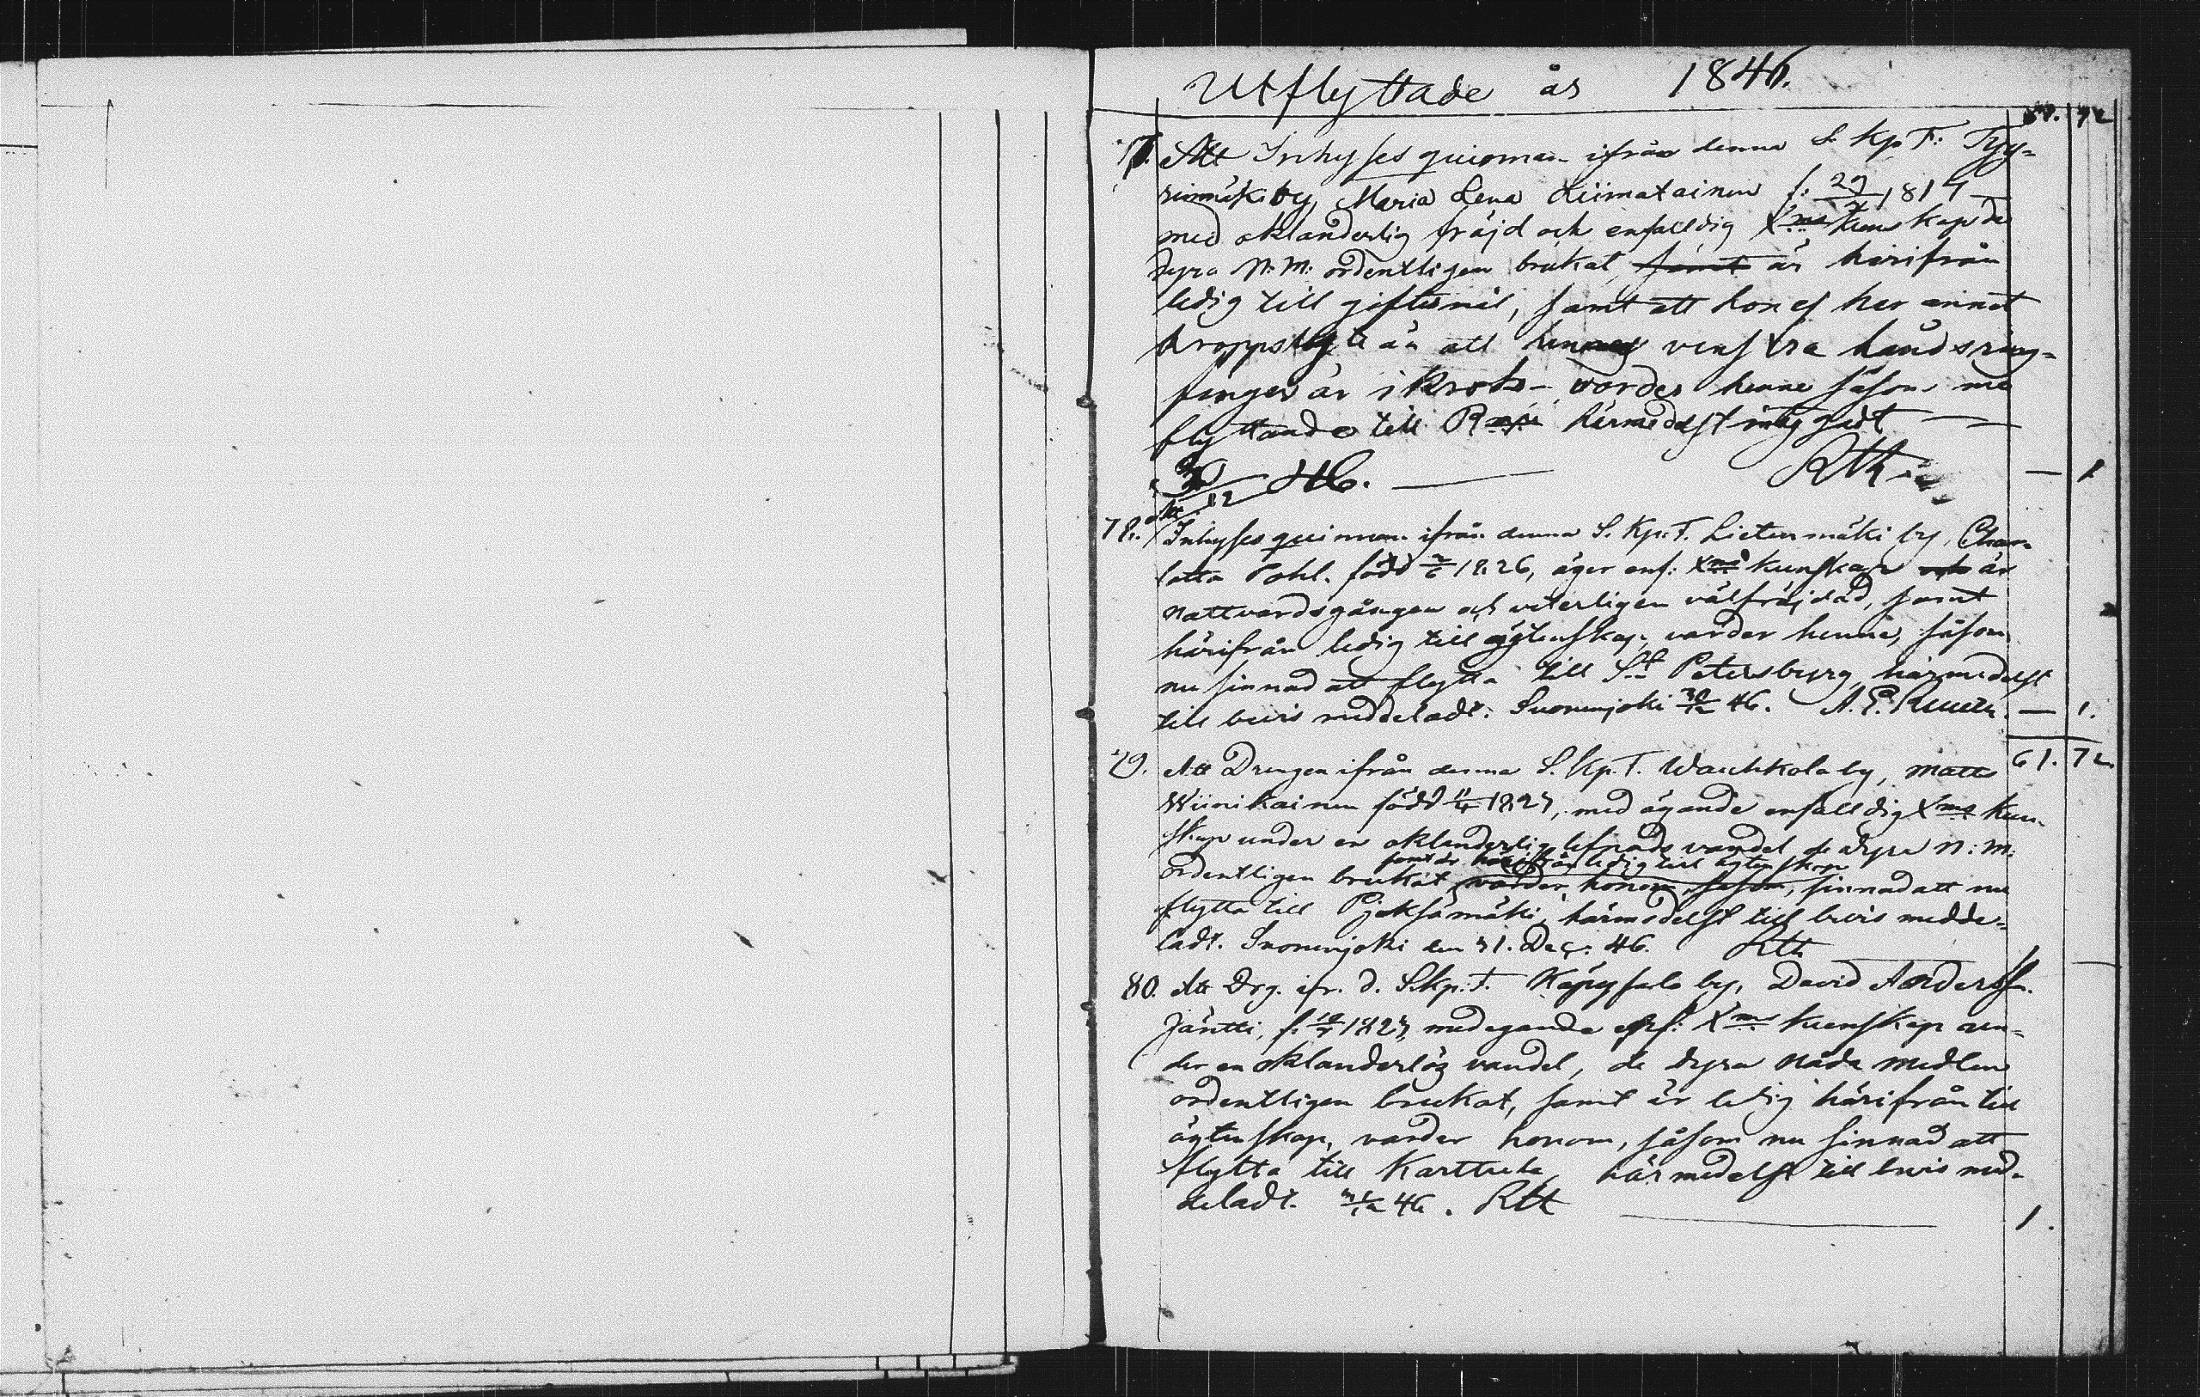 Utflyttade år 1846.
72
77. Att Inhyses quinnan ifrån denna S. Kp. F. Tyy-
rinmäki by, Maria Lena Liimatainen f. 29 1817
med oklanderlig fräjd och enfalldig Xna kunskap de
dyra N: M: ordentligen brukat, samt är härifrån
ledig till giftermål, samt att hon ej har annat
kroppslyte än att hennes venstra hands ring-
finger är i krok, varder henne såsom nu
flyttande till härmedelst intygadt
30/12 46. Rth — 1
78. Att Inhyses quinnan ifrån denna S. Kp. F. Lietenmäki by, Char-
lotta Pohl. född 2/6 1826, äger enf: Xna kunskap och är
nattvardsgången och veterligen välfräjdad, samt
härifrån ledig till ägtenskap, varder henne, såsom
nu sinnad att flytta till S:t Petersburg, härmedelst
till bevis meddeladt. Suonenjoki 30/12 46. — 1.
61. 72.
79. Att Drengen ifrån denna S. Kp. F. Wauhkola by, Matts
Wiinikainen född 1827, med ägande enfalldig Xna kun-
skap under en oklanderlig lefnads vandel de dyra N: M:
samt är härifrån ledig till ägtenskap
ordentligen brukat, varder honom såsom, sinnad att nu
flytta till Pjeksämäki, härmedelst till bevis medde-
ladt. Suonenjoki den 31. Dec: 46. Rth
80. Att Drg. ifr. d. S. Kp. F. Käpysalo by, David Anderss.
Jäntti, f. 1827, med egande enf: Xna kunskap un-
der en oklanderlig vandel, de dyra nåda medlen
ordentligen brukat, samt är ledig härifrån till
ägtenskap, varder honom, såsom nu sinnad att
flytta till Karttula, härmedelst till bevis med-
deladt. 31/12 46. Rth
1.